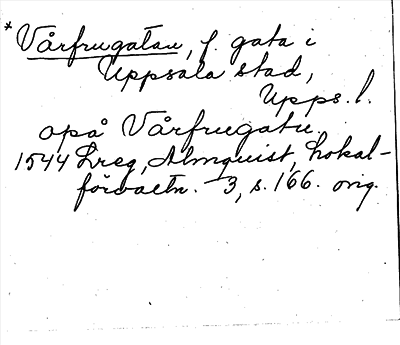 * Vårfrugatan, f. gata i
Uppsala stad,
Upps. l.
opå Vårfrugatu.
1544 Lreg, Almquist, Lokal-
förvaltn. 3, s. 166. orig.